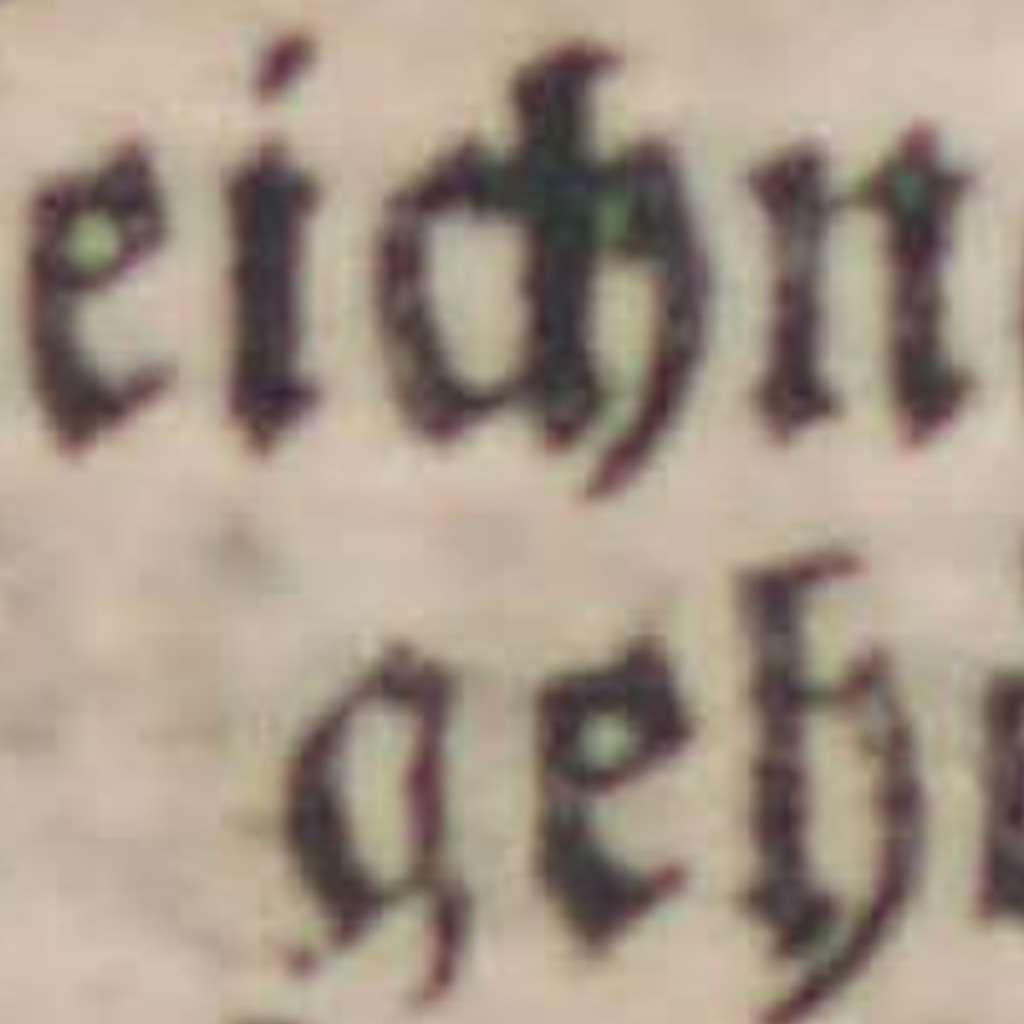 eichn
geh